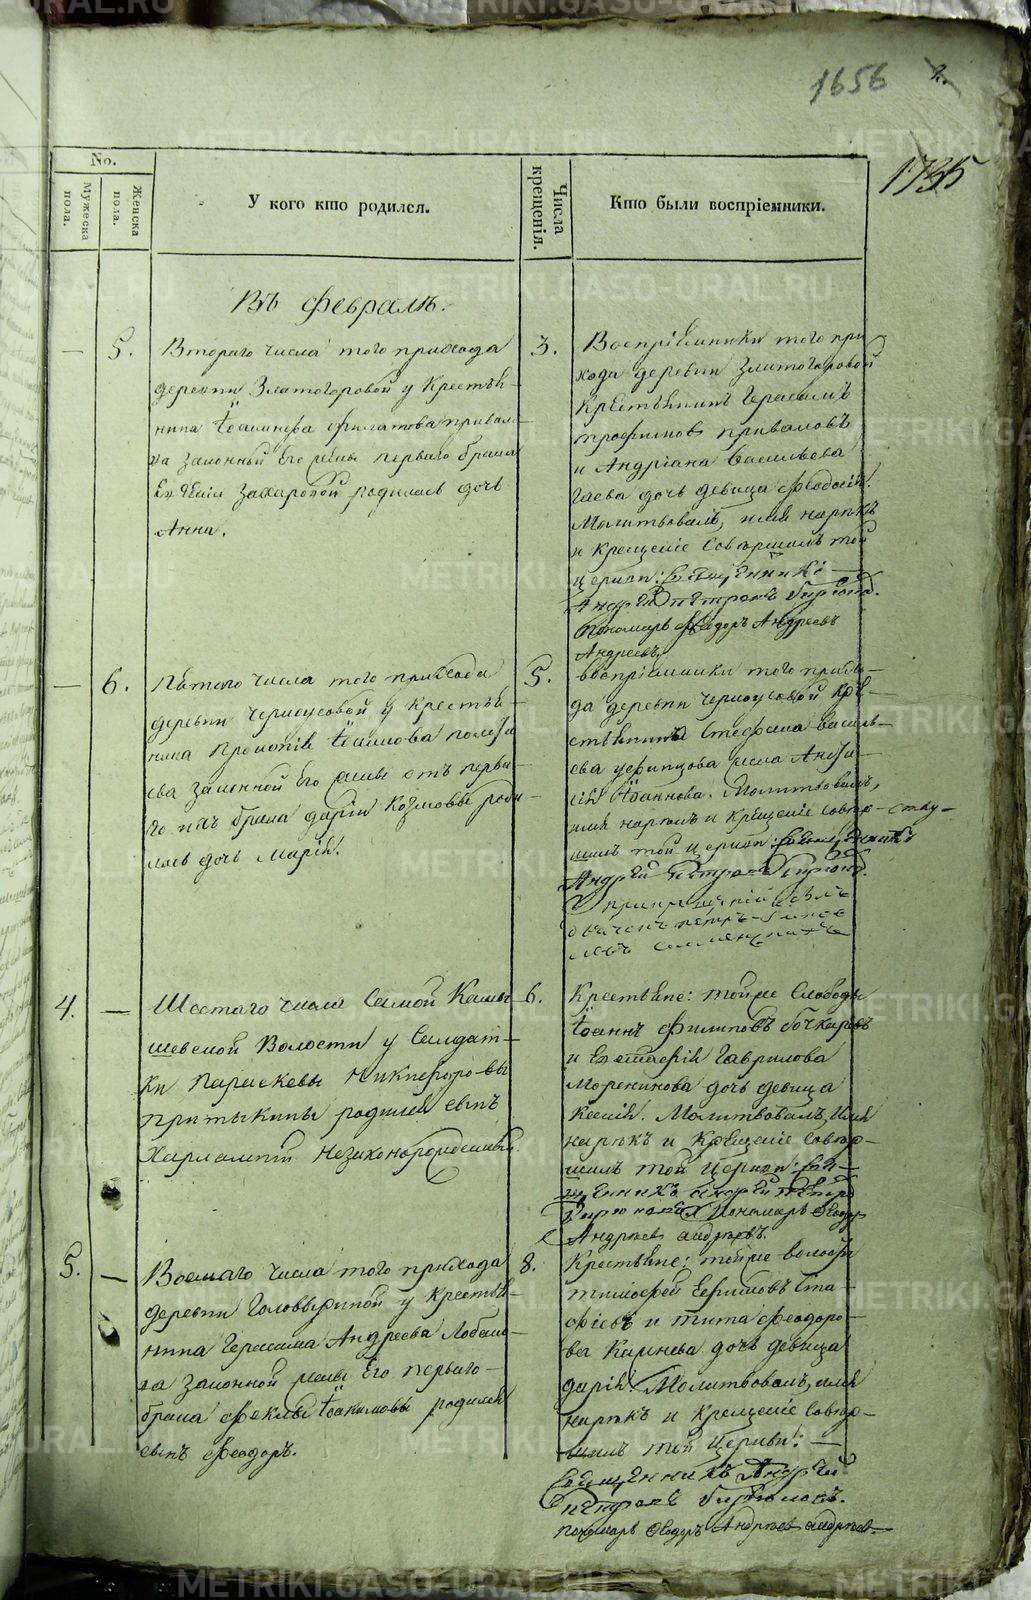 1656
1735
No.
Мужеска пола.
Женска пола.
У кого кто родился.
Числа крещенія.
Кто были воспріемники.
Въ Февралѣ.
— 5.
Втораго числа того прихода
деревни Златогоровой у крестья-
нина Филатова Привало-
ва законной его жены перваго брака
Захаровой родилась дочь
Анна.
3.
Воспріемники того при
хода деревни Златогоровой
крестьянинъ Герасимъ
Трофимовъ Приваловъ
и Андріана Васильева
Гаева дочь девица Феодосія.
Молитвовалъ, имя нарекъ
и крещеніе совершилъ той
церкви: Священникъ
Андрей Петровъ
Пономарь Феодоръ Андреевъ
Андреевъ.
— 6.
Пятаго числа того прихода
деревни Черноусовой у крестья-
нина Прокопія
законной его жены отъ перва-
го брака Даріи Козмовы роди-
лась дочь Марія.
5.
Воспріемники того прихо-
да деревни Черноусовой кре-
стьянина Стефана Василь-
ева жена
Іоаннова. Молитвовалъ,
имя нарекъ и крещеніе совер-
шилъ той церкви: Священникъ
Андрей Петровъ
4. —
Шестаго числа самой Камы-
шевской волости у солдат-
ки Параскевы Никифоровы
Притыкины родился сынъ
Харлампій незаконорожденный.
6.
Крестьяне: тойже слободы
Іоаннъ Филиповъ Бочкаревъ
и Гаврилова
дочь девица
Ксенія. Молитвовалъ, имя
нарекъ и крещеніе совер-
шилъ той церкви: Свя-
щенникъ Андрей Петровъ
Пономарь Феодоръ
Андреевъ Андреевъ.
5. —
Восмаго числа того прихода
деревни Головыриной у крестья-
нина Герасима Андреева Лобано-
ва законной жены его перваго
брака Феклы Іоакимовы родился
сынъ Феодоръ.
8.
Крестьяне: тойже волости
Тимофей Ефимовъ Ста-
и Тита Феодоро-
ва дочь девица
Дарія. Молитвовалъ, имя
нарекъ и крещеніе совер-
шилъ той церкви: —
Священникъ Андрей
Петровъ
Пономарь Феодоръ Андреевъ Андреевъ
METRIKI.GASO-URAL.RU